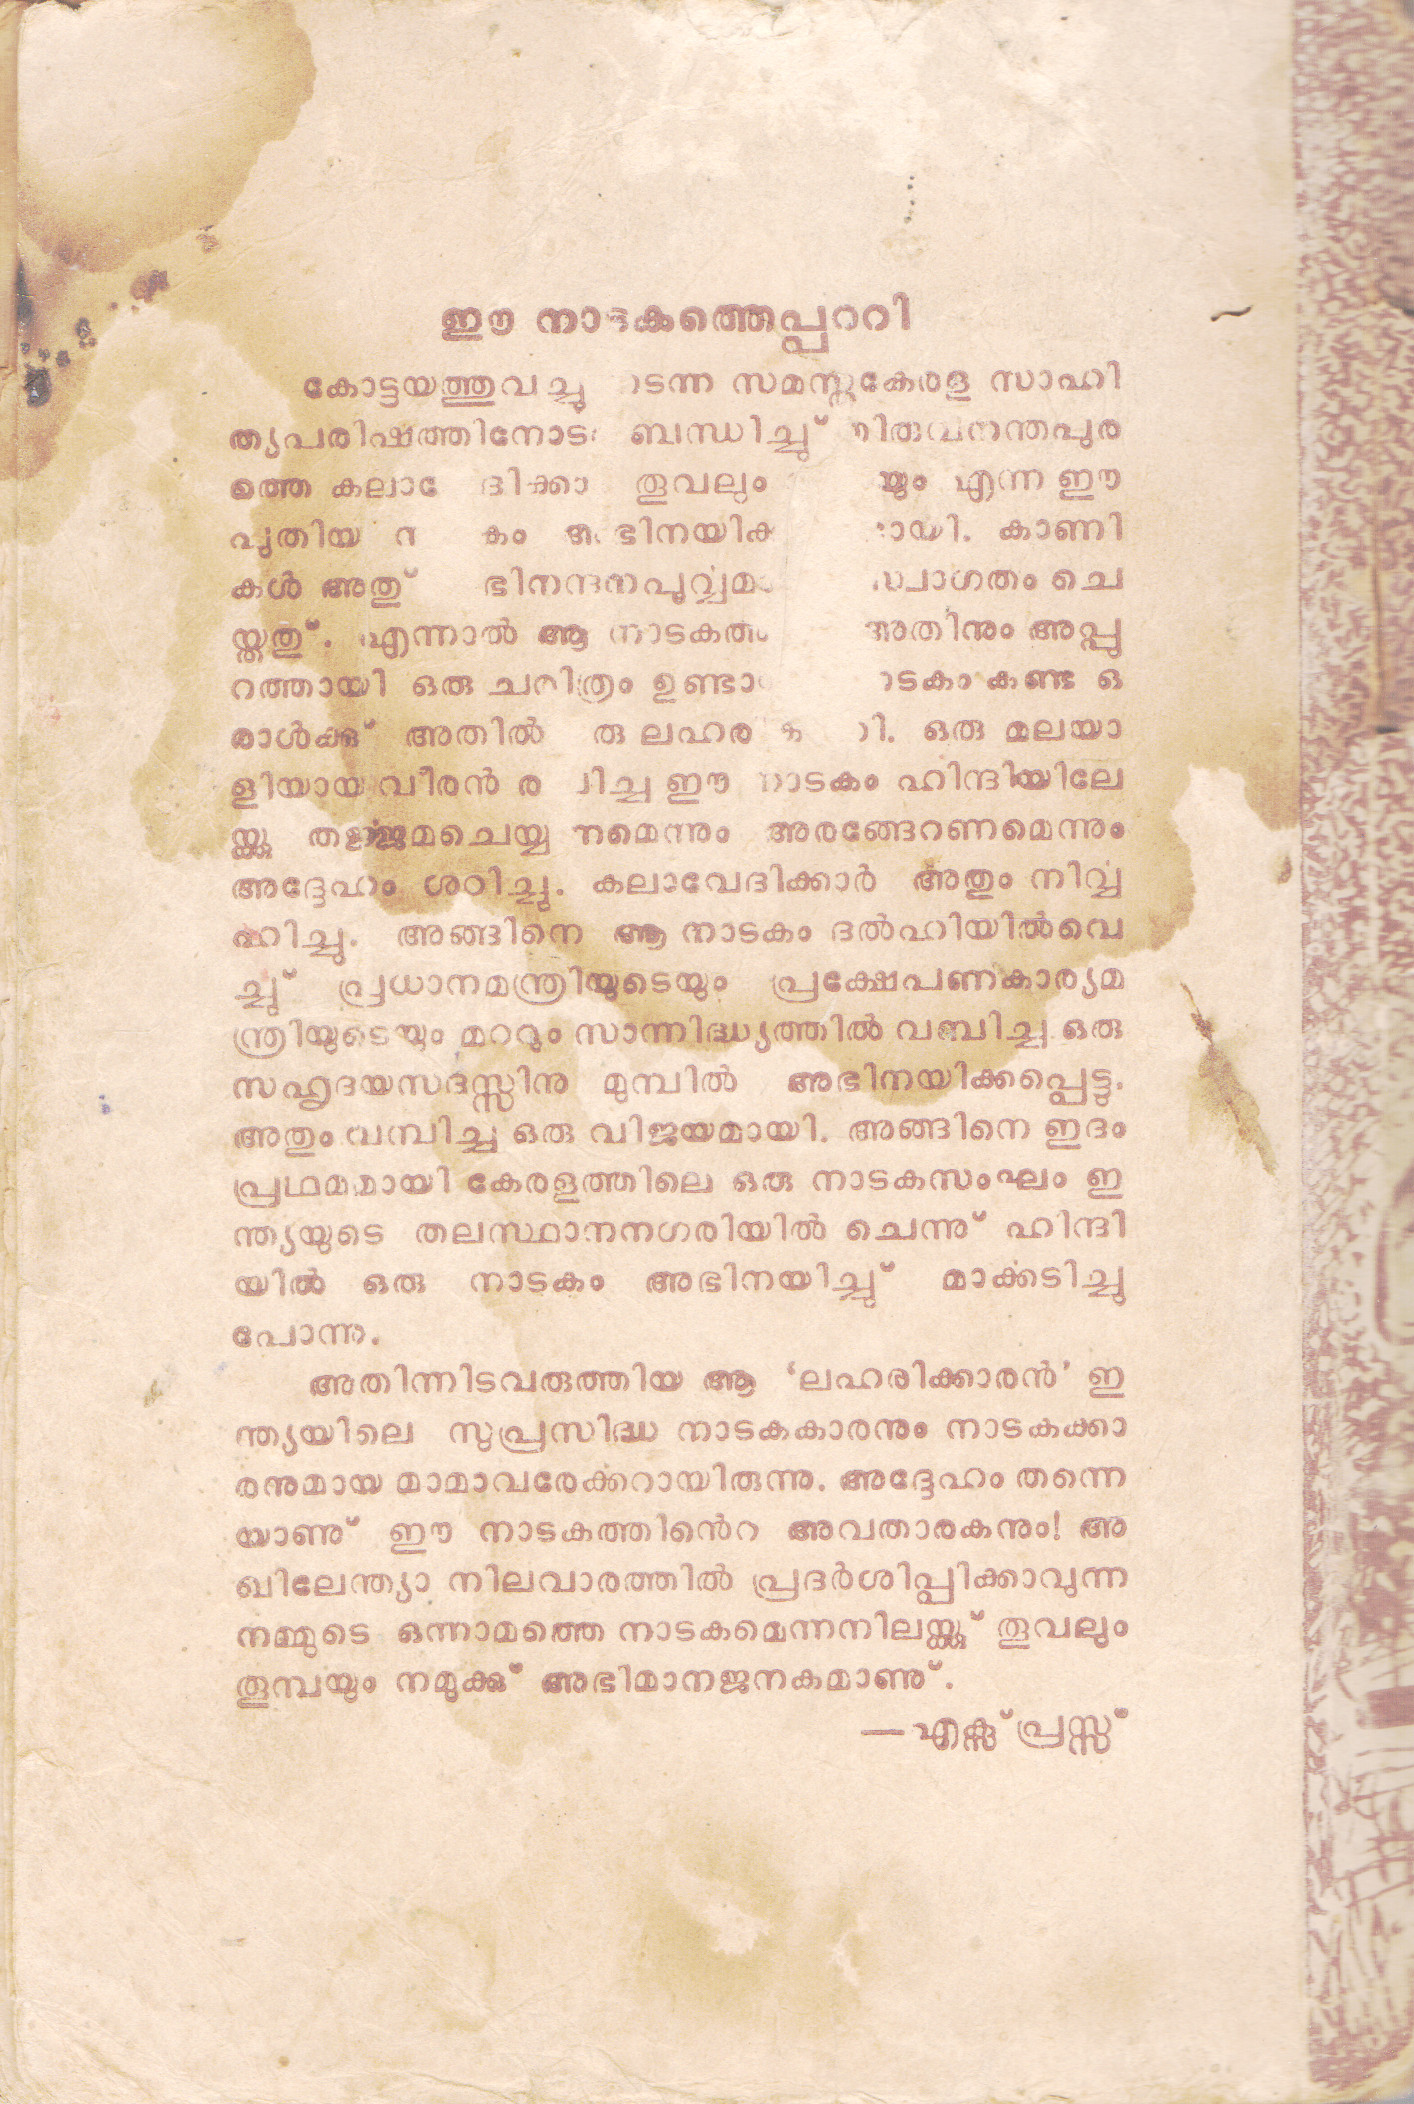 ഈ നാടകത്തെപ്പററി
കോട്ടയത്തുവച്ചു നടന്ന സമസ്തകേരള സാഹി
ത്യപരിഷത്തിനോട ബന്ധിച്ചു് തിരുവനന്തപുര
മത്തെ തൂവലും എന്ന ഈ
പുതിയ കാണി
കൾ അതു് സ്വാഗതം ചെ
യ്തതു്. എന്നാൽ ആ അതിനും അപ്പു
റത്തായി ഒരു ചരിത്രം കണ്ട ഒ
രാൾക്കു് അതിൽ ഒരു മലയാ
ളിയായ വീരൻ ഈ നാടകം ഹിന്ദിയിലേ
യ്ക്കു തർജ്ജമചെയ്യ ണമെന്നും അരങ്ങേറണമെന്നും
അദ്ദേഹം ശഠിച്ചു. കലാവേദിക്കാർ അതും നിവ്വ
ഹിച്ചു. അങ്ങിനെ ആ നാടകം ദൽഹിയിൽവെ
ച്ചു് പ്രധാനമന്ത്രിയുടെയും പ്രക്ഷേപണകാര്യമ
ന്ത്രിയുടെയും മററും സാന്നിദ്ധ്യത്തിൽ വമ്പിച്ച ഒരു
സഹൃദയസദസ്സിനു മുമ്പിൽ അഭിനയിക്കപ്പെട്ടു.
അതും വമ്പിച്ച ഒരു വിജയമായി. അങ്ങിനെ ഇദം
പ്രഥമമായി കേരളത്തിലെ ഒരു നാടകസംഘം ഇ
ന്ത്യയുടെ തലസ്ഥാനനഗരിയിൽ ചെന്നു് ഹിന്ദി
യിൽ ഒരു നാടകം അഭിനയിച്ചു് മാക്കടിച്ചു
പോന്നു.
അതിന്നിടവരുത്തിയ ആ ‘ലഹരിക്കാരൻ’ ഇ
ന്ത്യയിലെ സുപ്രസിദ്ധ നാടകകാരനും നാടകക്കാ
രനുമായ മാമാവരേക്കറായിരുന്നു. അദ്ദേഹം തന്നെ
യാണു് ഈ നാടകത്തിൻെറ അവതാരകനും! അ
ഖിലേന്ത്യാ നിലവാരത്തിൽ പ്രദർശിപ്പിക്കാവുന്ന
നമ്മുടെ ഒന്നാമത്തെ നാടകമെന്നനിലയ്ക്കു് തൂവലും
തൂമ്പയും നമുക്കു് അഭിമാനജനകമാണു്.
—എക്സ് പ്രസ്സ്